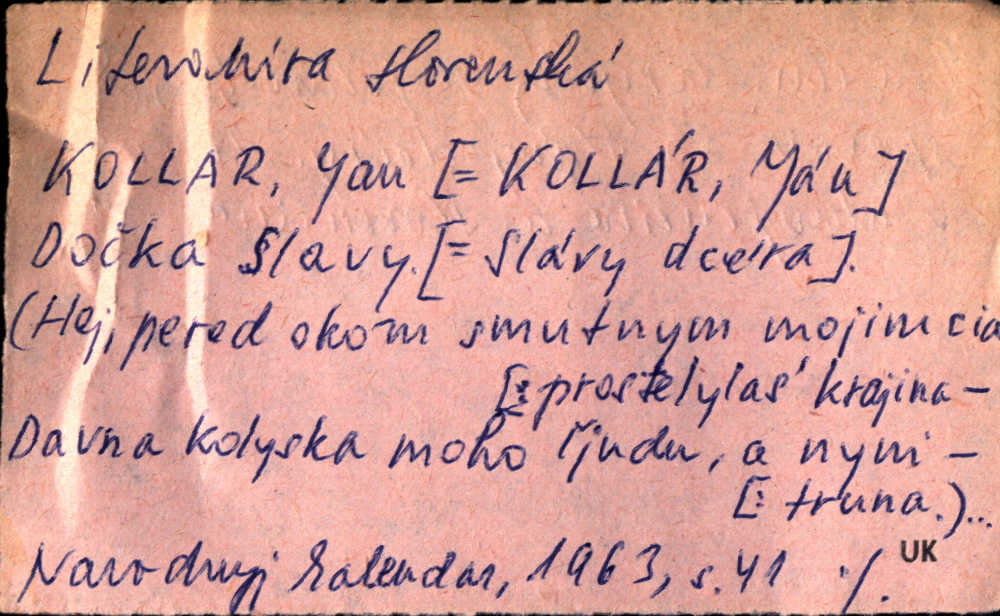 Literatúra slovenská
KOLLAR, Yan [= KOLLÁR, Ján]
Dočka Slavy. [= Slávy dcéra].
(Hej, pered okom smutnym mojim cia
[: prostelylaś krajina –
Davna kolyska moho ľjudu, a nyni –
[: truna.)...
Narodnyj kalendar, 1963, s. 41 ./.
UK